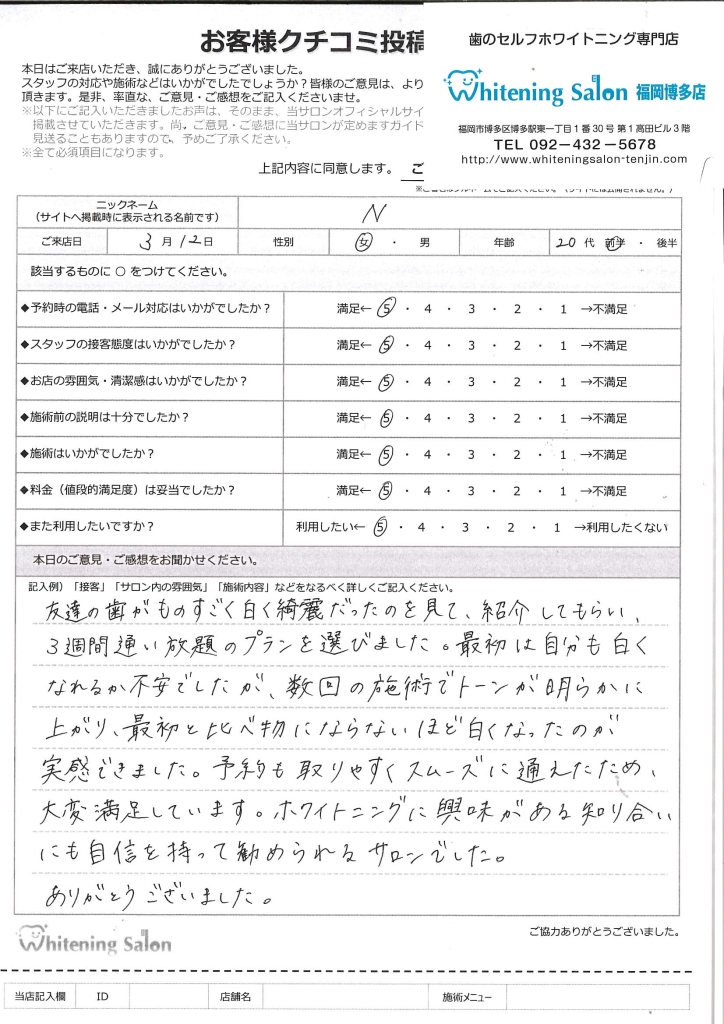 お客様クチコミ投稿
歯のセルフホワイトニング専門店
Whitening Salon 福岡博多店
福岡市博多区博多駅東一丁目1番30号 第1高田ビル3階
TEL 092-432-5678
http://www.whiteningsalon-tenjin.com
本日はご来店いただき、誠にありがとうございました。
スタッフの対応や施術などはいかがでしたでしょうか?皆様のご意見は、より
頂きます。是非、率直な、ご意見・ご感想をご記入くださいませ。
※以下にご記入いただきましたお声は、そのまま、当サロンオフィシャルサイ
掲載させていただきます。尚、ご意見・ご感想に当サロンが定めますガイド
見送ることもありますので、予めご了承ください。
※全て必須項目になります。
上記内容に同意します。 ご
ニックネーム
(サイトへ掲載時に表示される名前です) N
ご来店日 3月12日 性別 女 ・ 男 年齢 20代 前半 ・ 後半
該当するものに ○ をつけてください。
◆予約時の電話・メール対応はいかがでしたか? 満足← 5 ・ 4 ・ 3 ・ 2 ・ 1 →不満足
◆スタッフの接客態度はいかがでしたか? 満足← 5 ・ 4 ・ 3 ・ 2 ・ 1 →不満足
◆お店の雰囲気・清潔感はいかがでしたか? 満足← 5 ・ 4 ・ 3 ・ 2 ・ 1 →不満足
◆施術前の説明は十分でしたか? 満足← 5 ・ 4 ・ 3 ・ 2 ・ 1 →不満足
◆施術はいかがでしたか? 満足← 5 ・ 4 ・ 3 ・ 2 ・ 1 →不満足
◆料金(値段的満足度)は妥当でしたか? 満足← 5 ・ 4 ・ 3 ・ 2 ・ 1 →不満足
◆また利用したいですか? 利用したい← 5 ・ 4 ・ 3 ・ 2 ・ 1 →利用したくない
本日のご意見・ご感想をお聞かせください。
記入例)「接客」「サロン内の雰囲気」「施術内容」などをなるべく詳しくご記入ください。
友達の歯がものすごく白く綺麗だったのを見て、紹介してもらい、
3週間通い放題のプランを選びました。最初は自分も白く
なれるか不安でしたが、数回の施術でトーンが明らかに
上がり、最初と比べ物にならないほど白くなったのが
実感できました。予約も取りやすくスムーズに通えたため、
大変満足しています。ホワイトニングに興味がある知り合い
にも自信を持って勧められるサロンでした。
ありがとうございました。
Whitening Salon
ご協力ありがとうございました。
当店記入欄 ID 店舗名 施術メニュー